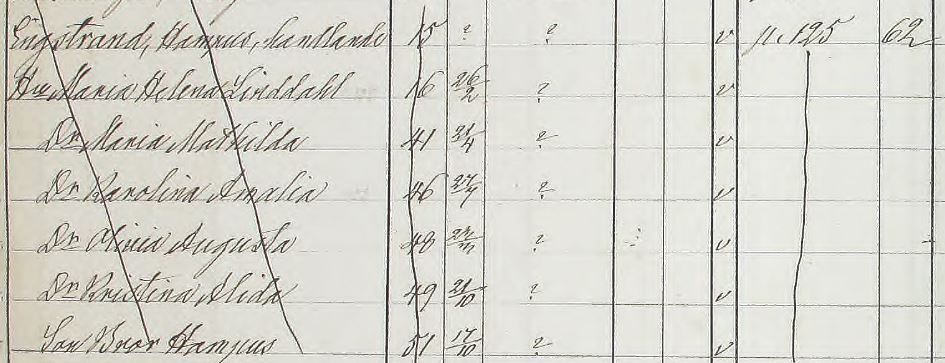 Engstrand, Hampus, handlande 15 ? ? v p. 125 62
Hu Maria Helena Linddahl 16 26/2 ? v
Dr Maria Mathilda 41 21/4 ? v
Dr Karolina Amalia 46 27/9 ? v
Dr Olivia Augusta 48 ? v
Dr Kristina Alida 49 21/10 ? v
Son Hampus 51 17/10 ? v